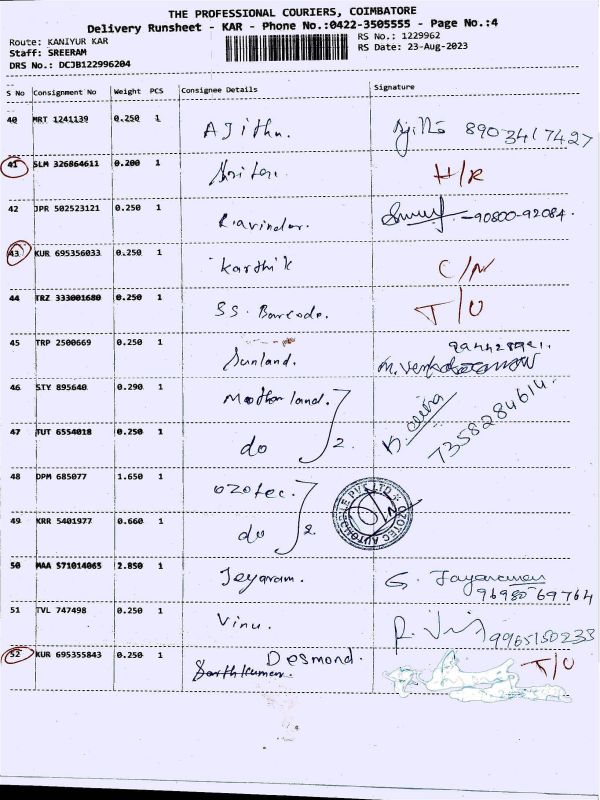 THE PROFESSIONAL COURIERS, COIMBATORE
Delivery Runsheet - KAR - Phone No.:0422-3505555 - Page No.:4
Route: KANIYUR KAR
Staff: SREERAM
DRS No.: DCJB122996204
RS No.: 1229962
RS Date: 23-Aug-2023
S No Consignment No Weight PCS Consignee Details Signature
40 MRT 1241139 0.250 1 Ajithu. 8903417427
41 SLM 326864611 0.200 1 H/R
42 JPR 502523121 0.250 1 Ravinder. -90800-92084.
43 KUR 695356033 0.250 1 Karthik C/N
44 TRZ 333001680 0.250 1 SS. Barcode. T/U
45 TRP 2500669 0.250 1 Sunland.
46 STY 895640 0.290 1 Motherland.
7358284614.
47 TUT 6554018 0.250 1 do 2.
48 DPM 685077 1.650 1 Ozotec.
OZOTEC AUTOMOBILE PVT LTD
49 KRR 5401977 0.660 1 do 2.
50 MAA 571014065 2.850 1 Jeyaram. G. Jayaraman
9698069764
51 TVL 747498 0.250 1 Vinu. 9965150233
52 KUR 695355843 0.250 1 Desmond. T/U